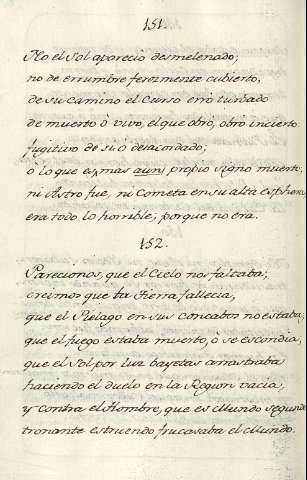 151.
No el Sol aparecio desmelenado;
no de errumbre ferozmente cubierto,
de su camino el Curso erró turbado
de muerto ò vivo, el que obró, obró incierto:
fugitivo de si, o desacordado;
ò lo que es mas aun, propio signo muerto,
ni Astro fue, ni Cometa en su alta espfhera
era todo lo horrible; porque no era.
152.
Parecionos, que el Cielo nos faltaba;
creimos que la tierra fallecia,
que el Pielago en sus Concabos no estaba,
que el fuego estaba muerto, ò se escondia;
que el Sol por luz bayetas arrastraba
haciendo el duelo en la Region vacia;
y contra el Hombre, que es Mundo segundo
tronante estruendo fracasaba el Mundo.